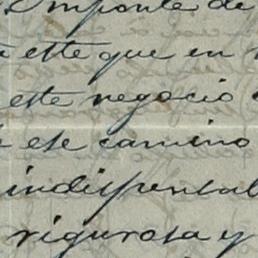 Imponte de
este que en
este negocio
ese camino
indispensabl
rigurosa y